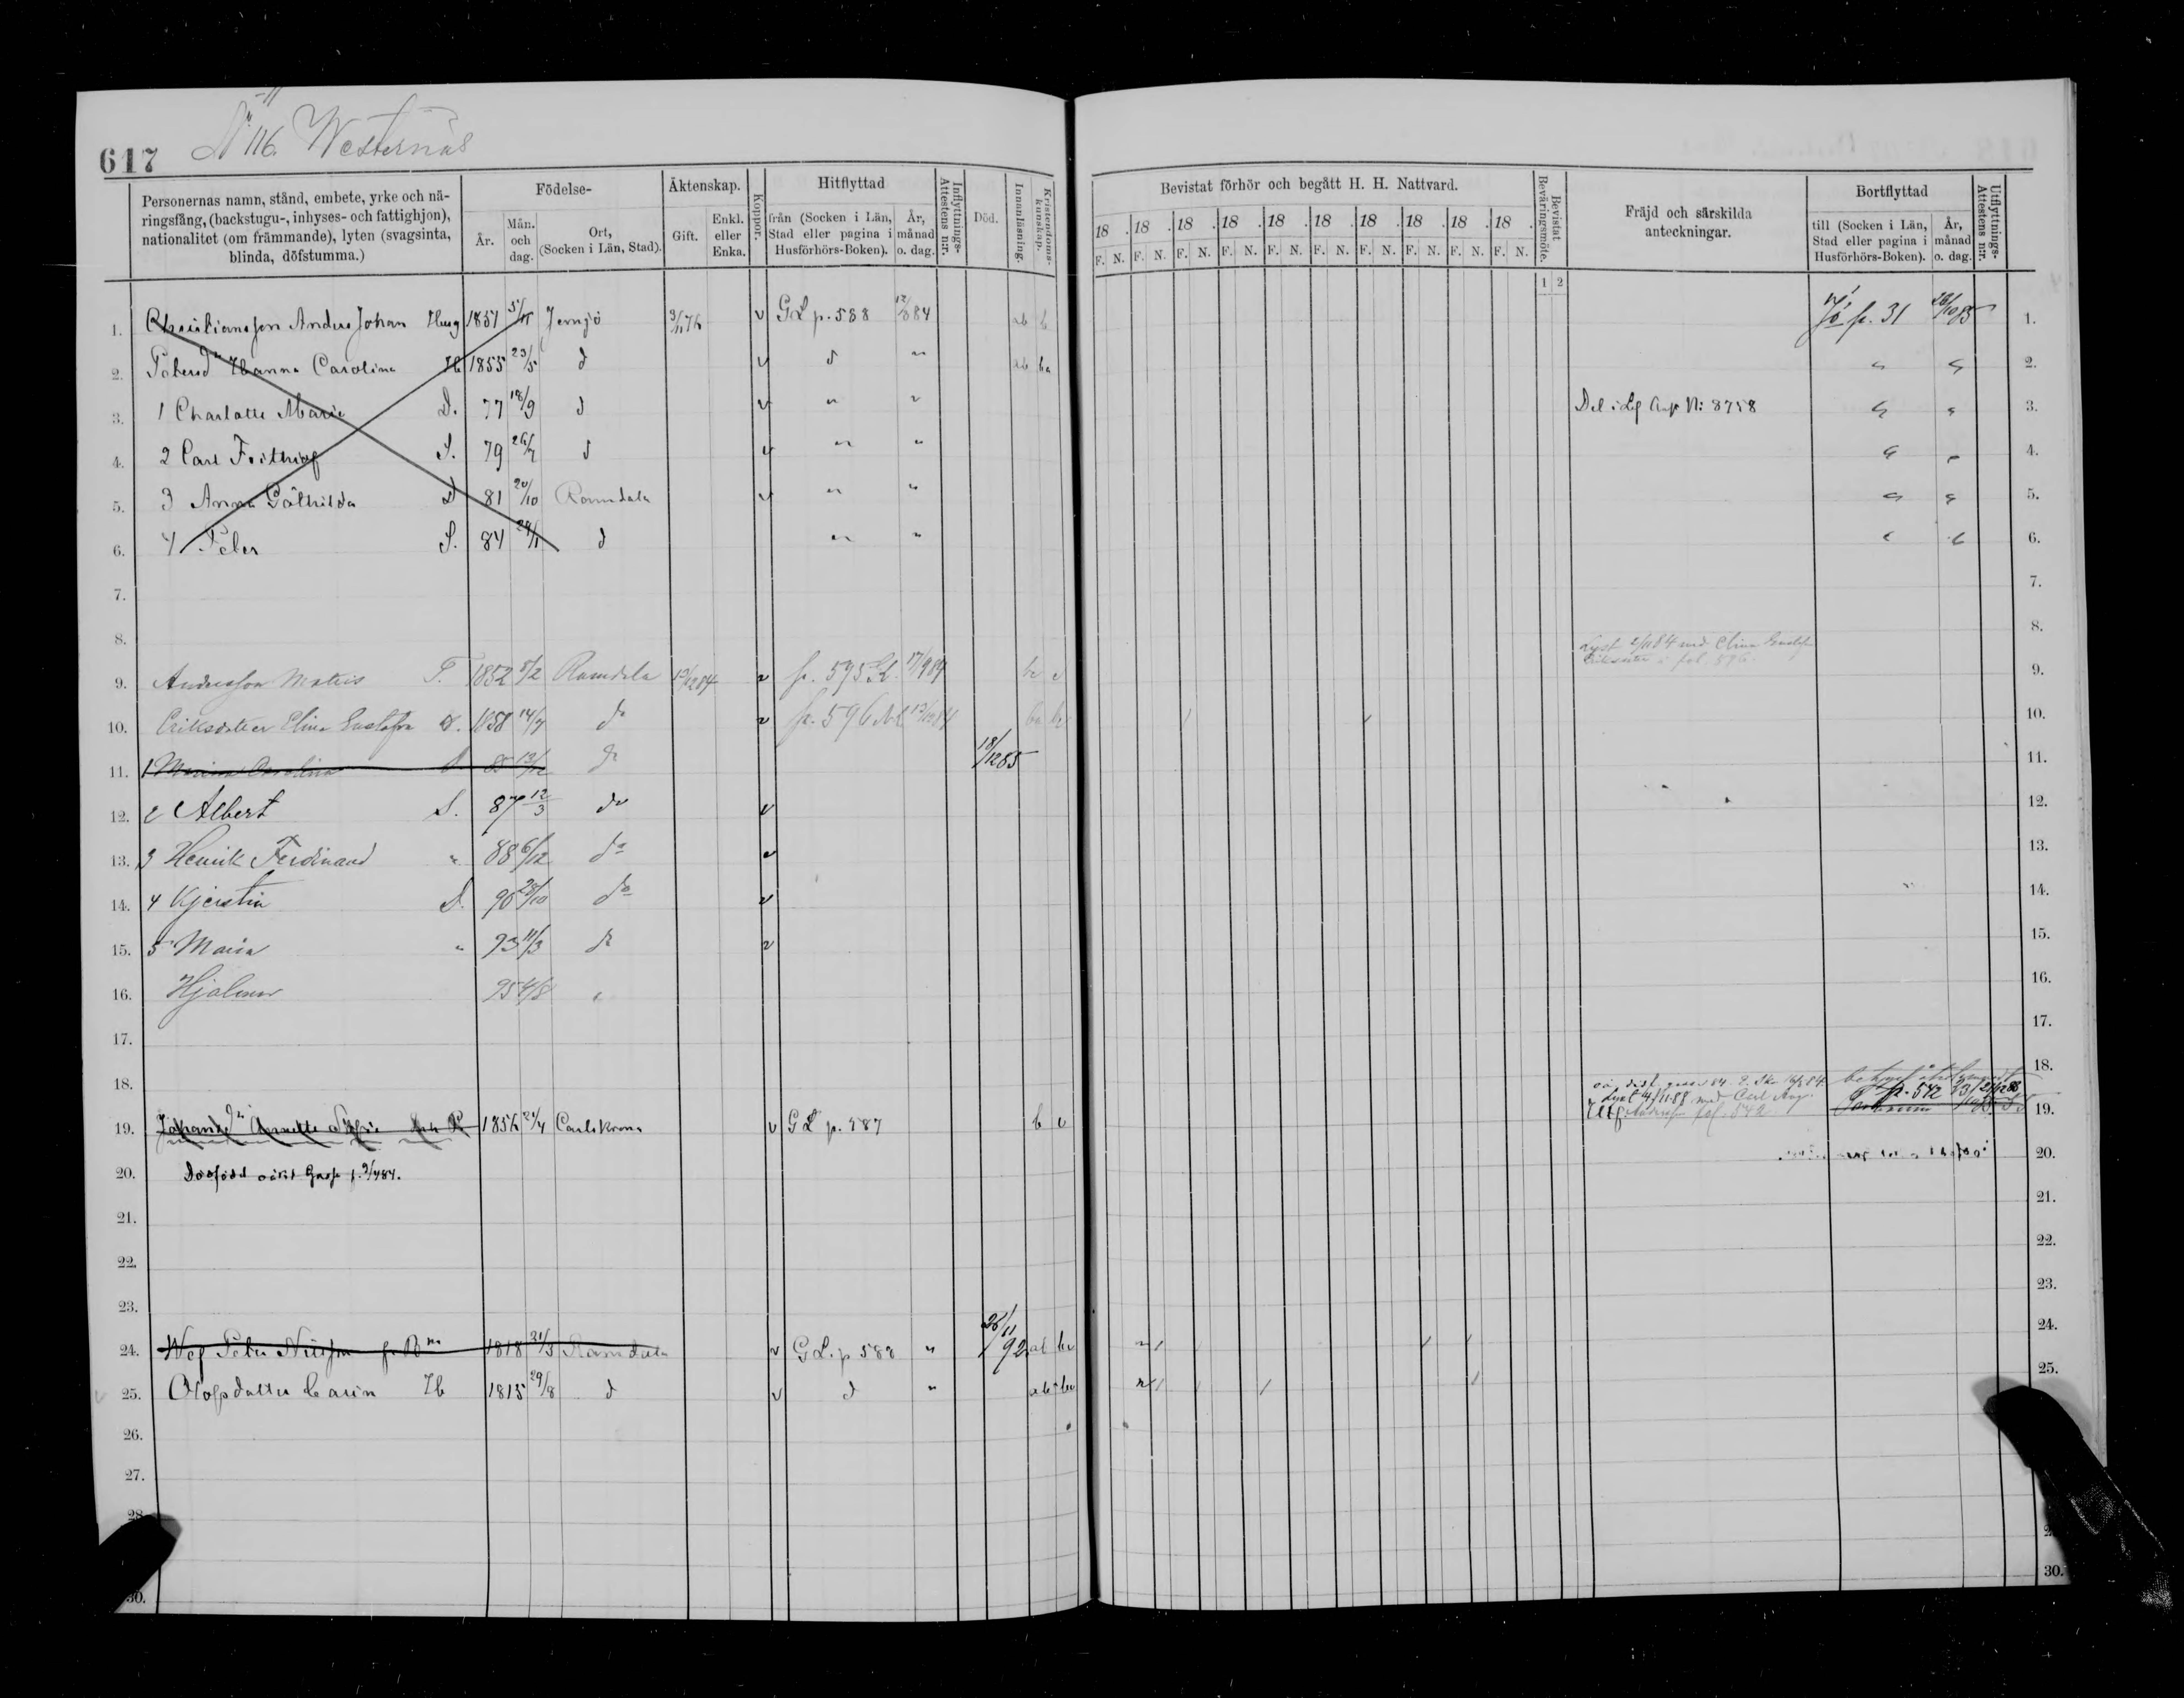 617 No 116. Westernäs
Personernas namn, stånd, embete, yrke och näringsfång, (backstugu-, inhyses- och fattighjon), nationalitet (om främmande), lyten (svagsinta, blinda, döfstumma.)
Födelse-
År.
Mån. och dag.
Ort, (Socken i Län, Stad).
Äktenskap.
Gift.
Enkl. eller Enka.
Koppor.
Hitflyttad
från (Socken i Län, Stad eller pagina i Husförhörs-Boken).
År, månad o. dag.
Inflyttnings-Attestens nr.
Död.
Innanläsning.
Kristendoms-kunskap.
Bevistat förhör och begått H. H. Nattvard.
18 . 18 . 18 . 18 . 18 . 18 . 18 . 18 . 18 . 18 .
F. N. F. N. F. N. F. N. F. N. F. N. F. N. F. N. F. N. F. N.
Bevistat Beväringsmöte.
1 2
Fräjd och särskilda anteckningar.
Bortflyttad
till (Socken i Län, Stad eller pagina i Husförhörs-Boken).
År, månad o. dag.
Utflyttnings-Attestens nr.
1. Christiansson Anders Johan Husg 1851 5/11 Jemjö 3/11 76 v GL p. 588 12/8 84 ab b p. 31 28/10 85 1.
2. Petersdr Hanna Carolina H 1855 23/5 d v d " ab ba " " 2.
3. 1 Charlotte Marie D. 77 18/9 d v " " No: 8758 " " 3.
4. 2 Carl Frithiof S. 79 26/7 d v " " " " 4.
5. 3 Anna Gäthilda D 81 20/10 Ramdala v " " " " 5.
6. 4 Peter S. 84 29/1 d " " " " 6.
7. 7.
8. Lyst 2/11 84 med Elina Gustafva 8.
Eriksdotter i fol. 596.
9. Andersson Mattis T. 1852 5/2 Ramdala 13/12 84 v p. 595 GL. 17/9 84 9.
10. Eriksdotter Elina Gustafva D. 1858 14/7 do v p. 596 NL 13/12 84 ba 10.
11. 1 Maria Carolina D. 85 13/12 do 18/12 85 11.
12. 2 Albert S. 87 12/3 do v 12.
13. 3 Henrik Ferdinand " 88 6/12 do v 13.
14. 4 Kjerstin D. 90 28/10 do v 14.
15. 5 Maria " 93 11/3 do v 15.
16. Hjalmar 95 4/8 " 16.
17. 17.
18. 18.
Lyst 4/11 88 med Carl Aug. p. 542
19. Johansdr Annette Sofie 1856 21/4 Carlskrona v GL p. 587 b v fol. 542 19.
20. Dödfödd oäkt Goss f. 9/4 84. 20.
21. 21.
22. 22.
23. 23.
24. Peter Nilsson 1818 31/3 Ramdala v GL. p 588 " 26/11 92 ab 24.
25. Olofsdotter Carin H 1815 29/8 d v d " ab 25.
26.
27.
28.
30. 30.